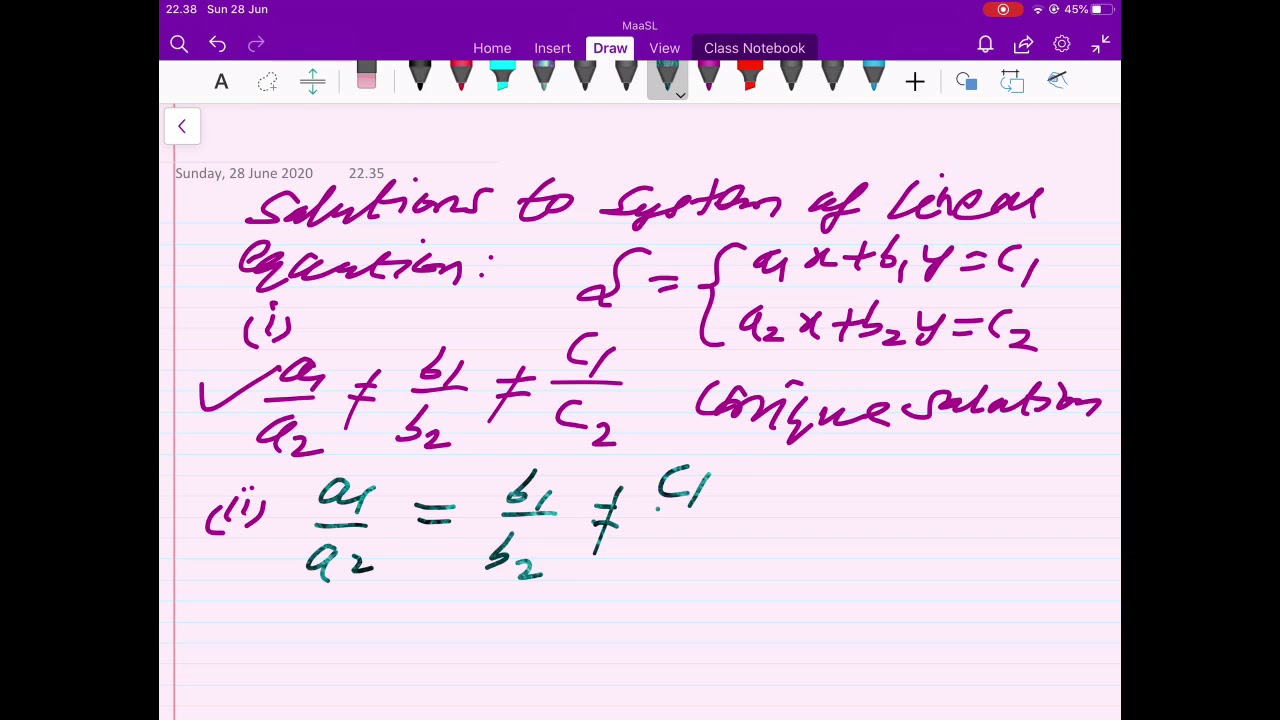 22.38 Sun 28 Jun 45%
MaaSL
Home Insert Draw View Class Notebook
A
Sunday, 28 June 2020 22.35
solutions to system of linear
equation: = { a₁x+b₁y=c₁
a₂x+b₂y=c₂
(i)
✓ a₁/a₂ ≠ b₁/b₂ ≠ C₁/C₂ Unique solution
(ii) a₁/a₂ = b₁/b₂ ≠ C₁